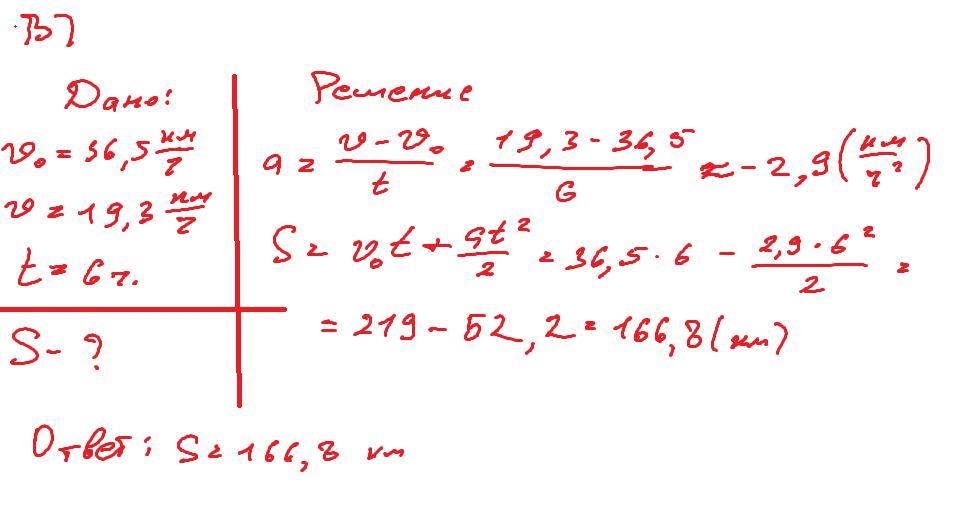 В7
Дано:
v₀ = 36,5 км/ч
v = 19,3 км/ч
t = 6 ч.
S - ?
Решение
a = (v - v₀)/t = (19,3 - 36,5)/6 ≈ -2,9 (км/ч²)
S = v₀t + at²/2 = 36,5 · 6 - (2,9 · 6²)/2 =
= 219 - 52,2 = 166,8 (км)
Ответ: S = 166,8 км